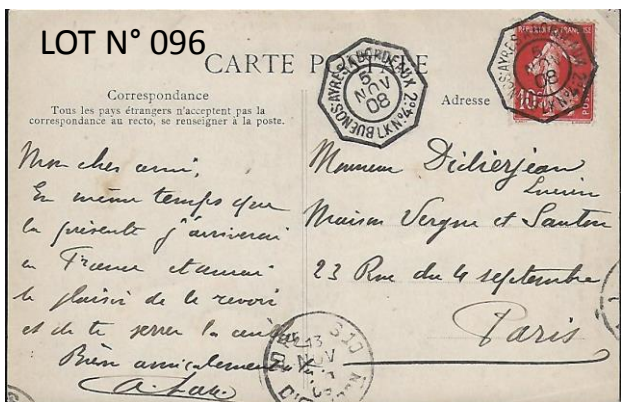 LOT N° 096
CARTE POSTALE
Correspondance
Tous les pays étrangers n'acceptent pas la
correspondance au recto, se renseigner à la poste.
Adresse
BUENOS-AYRES A BORDEAUX 2°
5
NOV
08
BUENOS-AYRES A BORDEAUX 2°
5
NOV
08
10
Mon cher ami,
En même temps que
la présente j'arriverai
en France et aurai
le plaisir de te revoir
et de te serrer la
Bien amicalement
Monsieur Didierjean
Lucien
Maison Vergne et Santou
23 Rue du 4 septembre
Paris
13
NOV